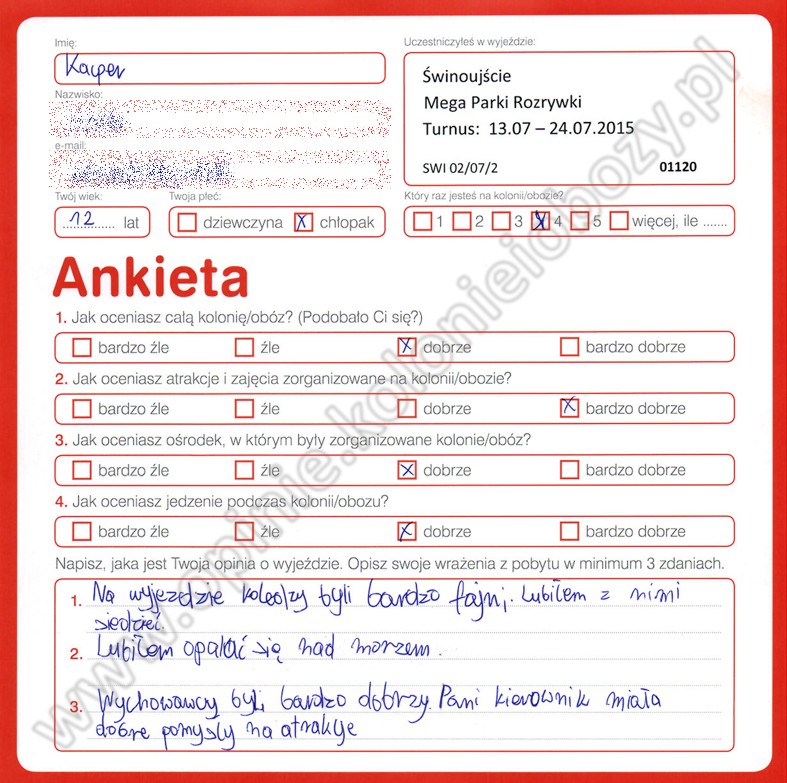 Imię:
Kacper
Uczestniczyłeś w wyjeździe:
Świnoujście
Mega Parki Rozrywki
Turnus: 13.07 – 24.07.2015
SWI 02/07/2 01120
Nazwisko:
e-mail:
Twój wiek:
12 lat
Twoja płeć:
dziewczyna X chłopak
Który raz jesteś na kolonii/obozie?
1 2 3 X 4 5 więcej, ile .......
Ankieta
1. Jak oceniasz całą kolonię/obóz? (Podobało Ci się?)
bardzo źle źle X dobrze bardzo dobrze
2. Jak oceniasz atrakcje i zajęcia zorganizowane na kolonii/obozie?
bardzo źle źle dobrze X bardzo dobrze
3. Jak oceniasz ośrodek, w którym były zorganizowane kolonie/obóz?
bardzo źle źle X dobrze bardzo dobrze
4. Jak oceniasz jedzenie podczas kolonii/obozu?
bardzo źle źle X dobrze bardzo dobrze
Napisz, jaka jest Twoja opinia o wyjeździe. Opisz swoje wrażenia z pobytu w minimum 3 zdaniach.
1. Na wyjezdzie koledzy byli bardzo fajni. Lubiłem z nimi
siedzieć.
2. Lubiłem opalać się nad morzem.
3. Wychowawcy byli bardzo dobrzy. Pani kierownik miała
dobre pomysły na atrakcje
www.opinie.kolonieiobozy.pl